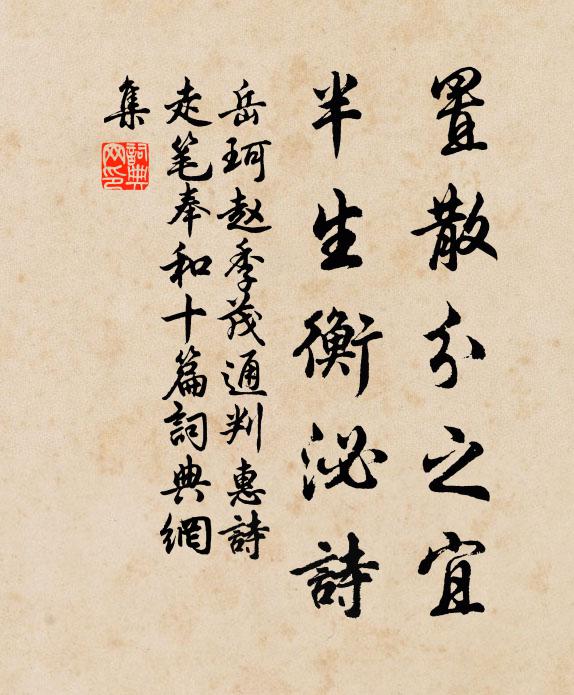 置散分之宜
半生衡泌詩
岳珂赵季茂通判惠詩
走笔奉和十篇詞典網
集
詞典
网印